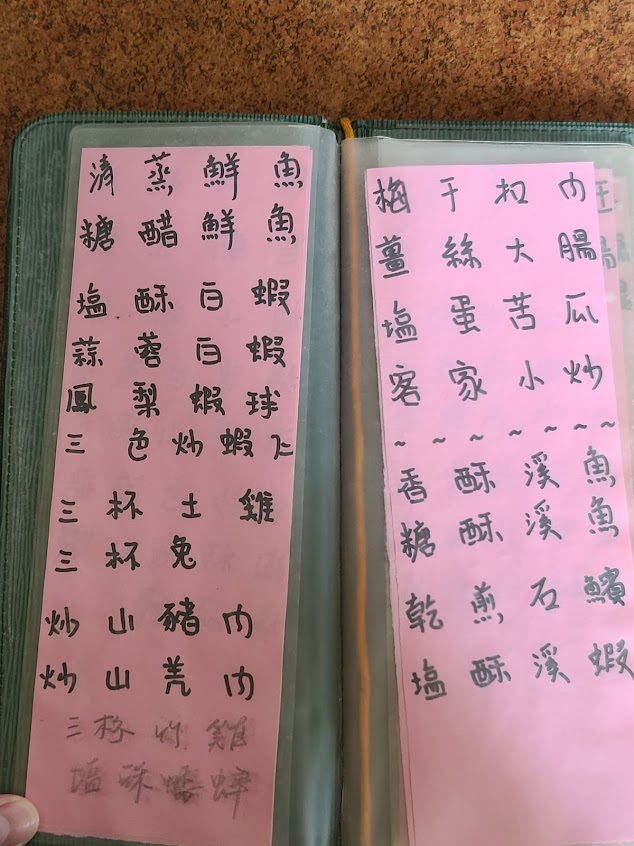 清蒸鮮魚
糖醋鮮魚
塩酥白蝦
蒜蓉白蝦
鳳梨蝦球
三色炒蝦仁
三杯土雞
三杯兔
炒山豬内
炒山羌内
三杯竹雞
塩酥蟋蟀
梅干扣内
薑絲大腸
塩蛋苦瓜
客家小炒
~ ~ ~ ~ ~ ~ ~
香酥溪魚
糖酥溪魚
乾煎石鱝
塩酥溪蝦